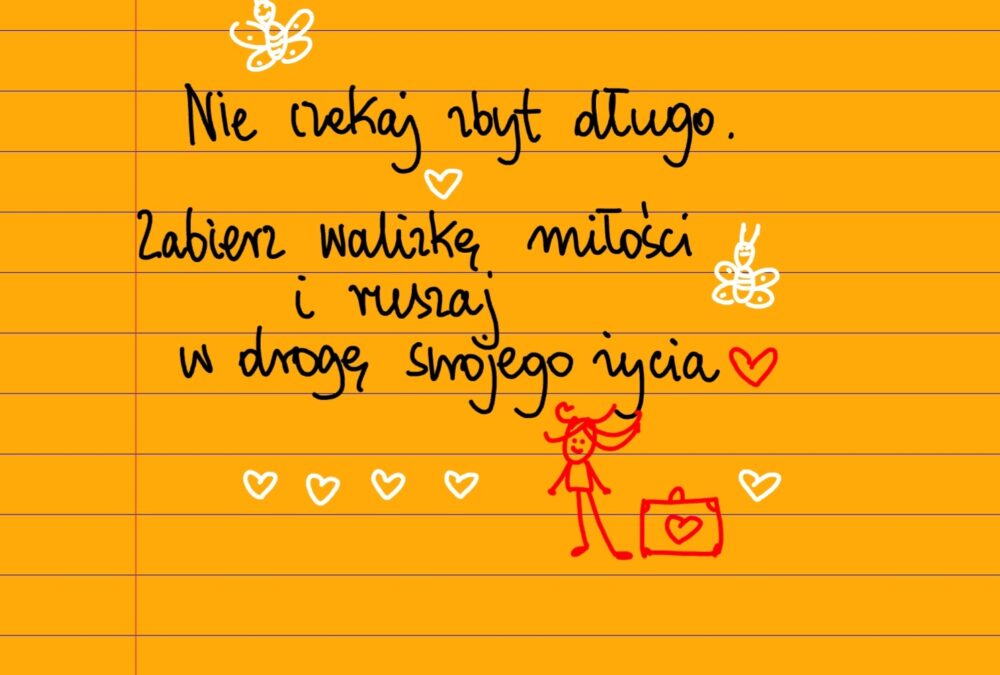 Nie czekaj zbyt długo.
Zabierz walizkę miłości
i ruszaj
w drogę swojego życia